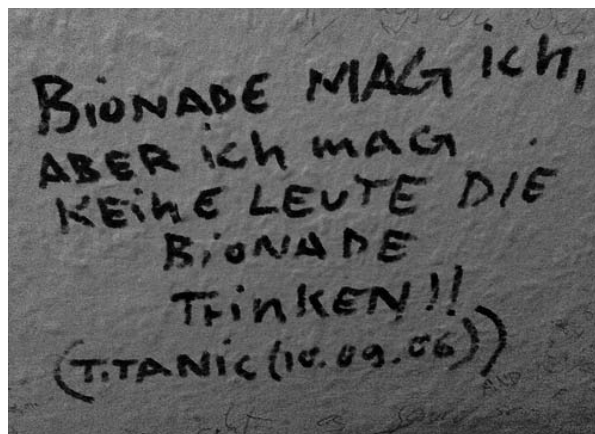 BiONADE MAG ich,
ABER ich mAG
KEihE LEUTE DIE
BiONADE
TrinKEN!!
(TiTANiC (10.09.06))